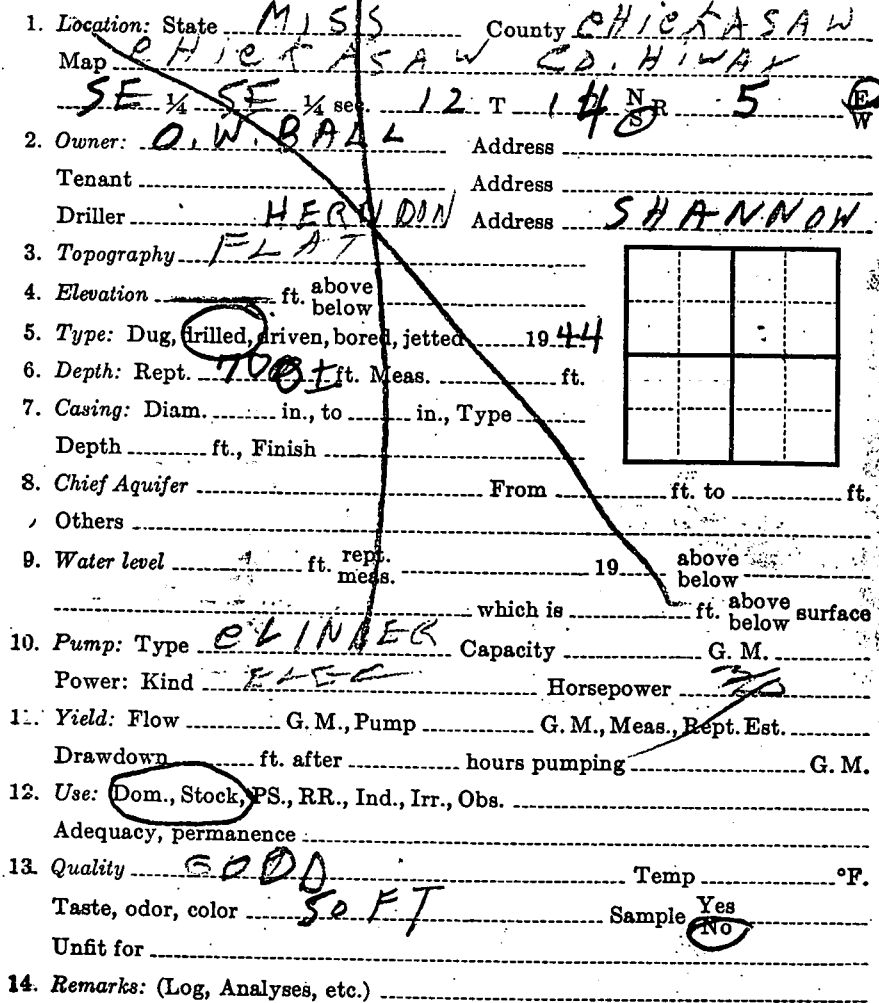 1. Location: State MISS County CHICKASAW
Map CHICKASAW CO. HIWAY
SE ¼ SE ¼ sec. 12 T 14 N S R 5 E W
2. Owner: O. W. BALL Address
Tenant Address
Driller HERNDON Address SHANNOW
3. Topography FLAT
4. Elevation ft. above below
5. Type: Dug, drilled, driven, bored, jetted 1944
6. Depth: Rept. 700± ft. Meas. ft.
7. Casing: Diam. in., to in., Type
Depth ft., Finish
8. Chief Aquifer From ft. to ft.
Others
9. Water level ft. rept. meas. 19 above below
which is ft. above below surface
10. Pump: Type CLINDER Capacity G. M.
Power: Kind ELEC Horsepower
11. Yield: Flow G. M., Pump G. M., Meas., Rept. Est.
Drawdown ft. after hours pumping G. M.
12. Use: Dom., Stock, PS., RR., Ind., Irr., Obs.
Adequacy, permanence
13. Quality GOOD Temp °F.
Taste, odor, color SOFT Sample Yes No
Unfit for
14. Remarks: (Log, Analyses, etc.)